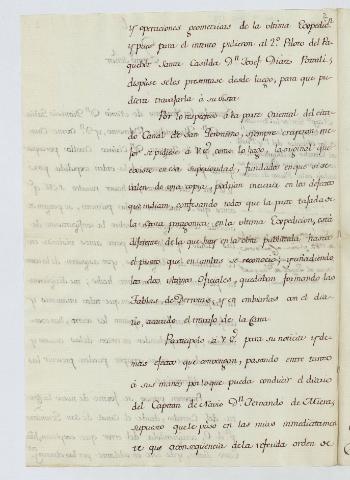 y operaciones geometricas de la ultima Expedicn.
y pues para el intento pidieron al 2.º Piloto del Pa
quebot Santa Casilda Dn. Josef Diaz
dispuse se les presentase desde luego, para que pu
diera trabajarla á su vista.
Por lo respectivo á la parte Oriental del cita
do Canal de San Geronimo, siempre creyeron me
jor se pidiese á V.E. como lo hago, la original que
existe en esa superioridad, fundados en que si se
valen de una copia, podrian incurrir en los defectos
que indican, confesando todos que la parte
la costa patagonica en la ultima Expedicion, está
diferente de la que hay en la obra publicada hasta
el punto que en ambas se reconoció; y añadiendo
los dos ultimos Oficiales, quedaban formando las
Tablas de y en embiarlas con el dia
rio, acavado el
Participolo á V.E. para su noticia y de
mas efectos que convengan, pasando entre tanto
á sus manos por lo que pueda conducir el diario
del Capitan de Navio Dn. Fernando de Miera,
supuesto que le puso en las mias inmediatamen
te que a consequencia de la referida orden de